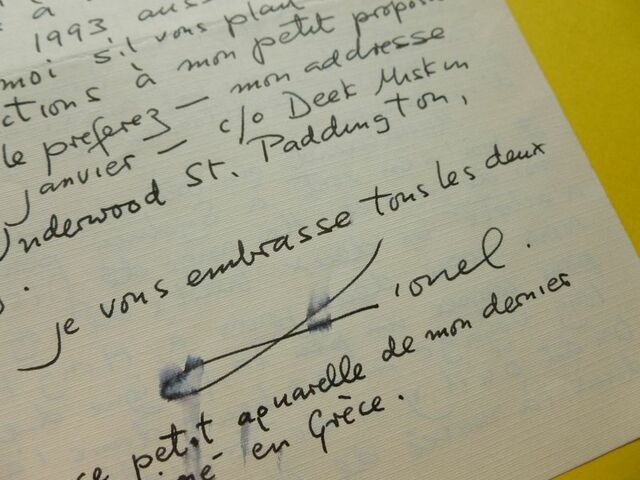 à
1993 aussi
moi s'il vous plait
ctions à mon petit propos
le preferez – mon addresse
janvier – c/o Deek Miskin
Underwood St. Paddington,
je vous embrasse tous les deux
Lionel.
ce petit aquarelle de mon dernier
en Grèce.